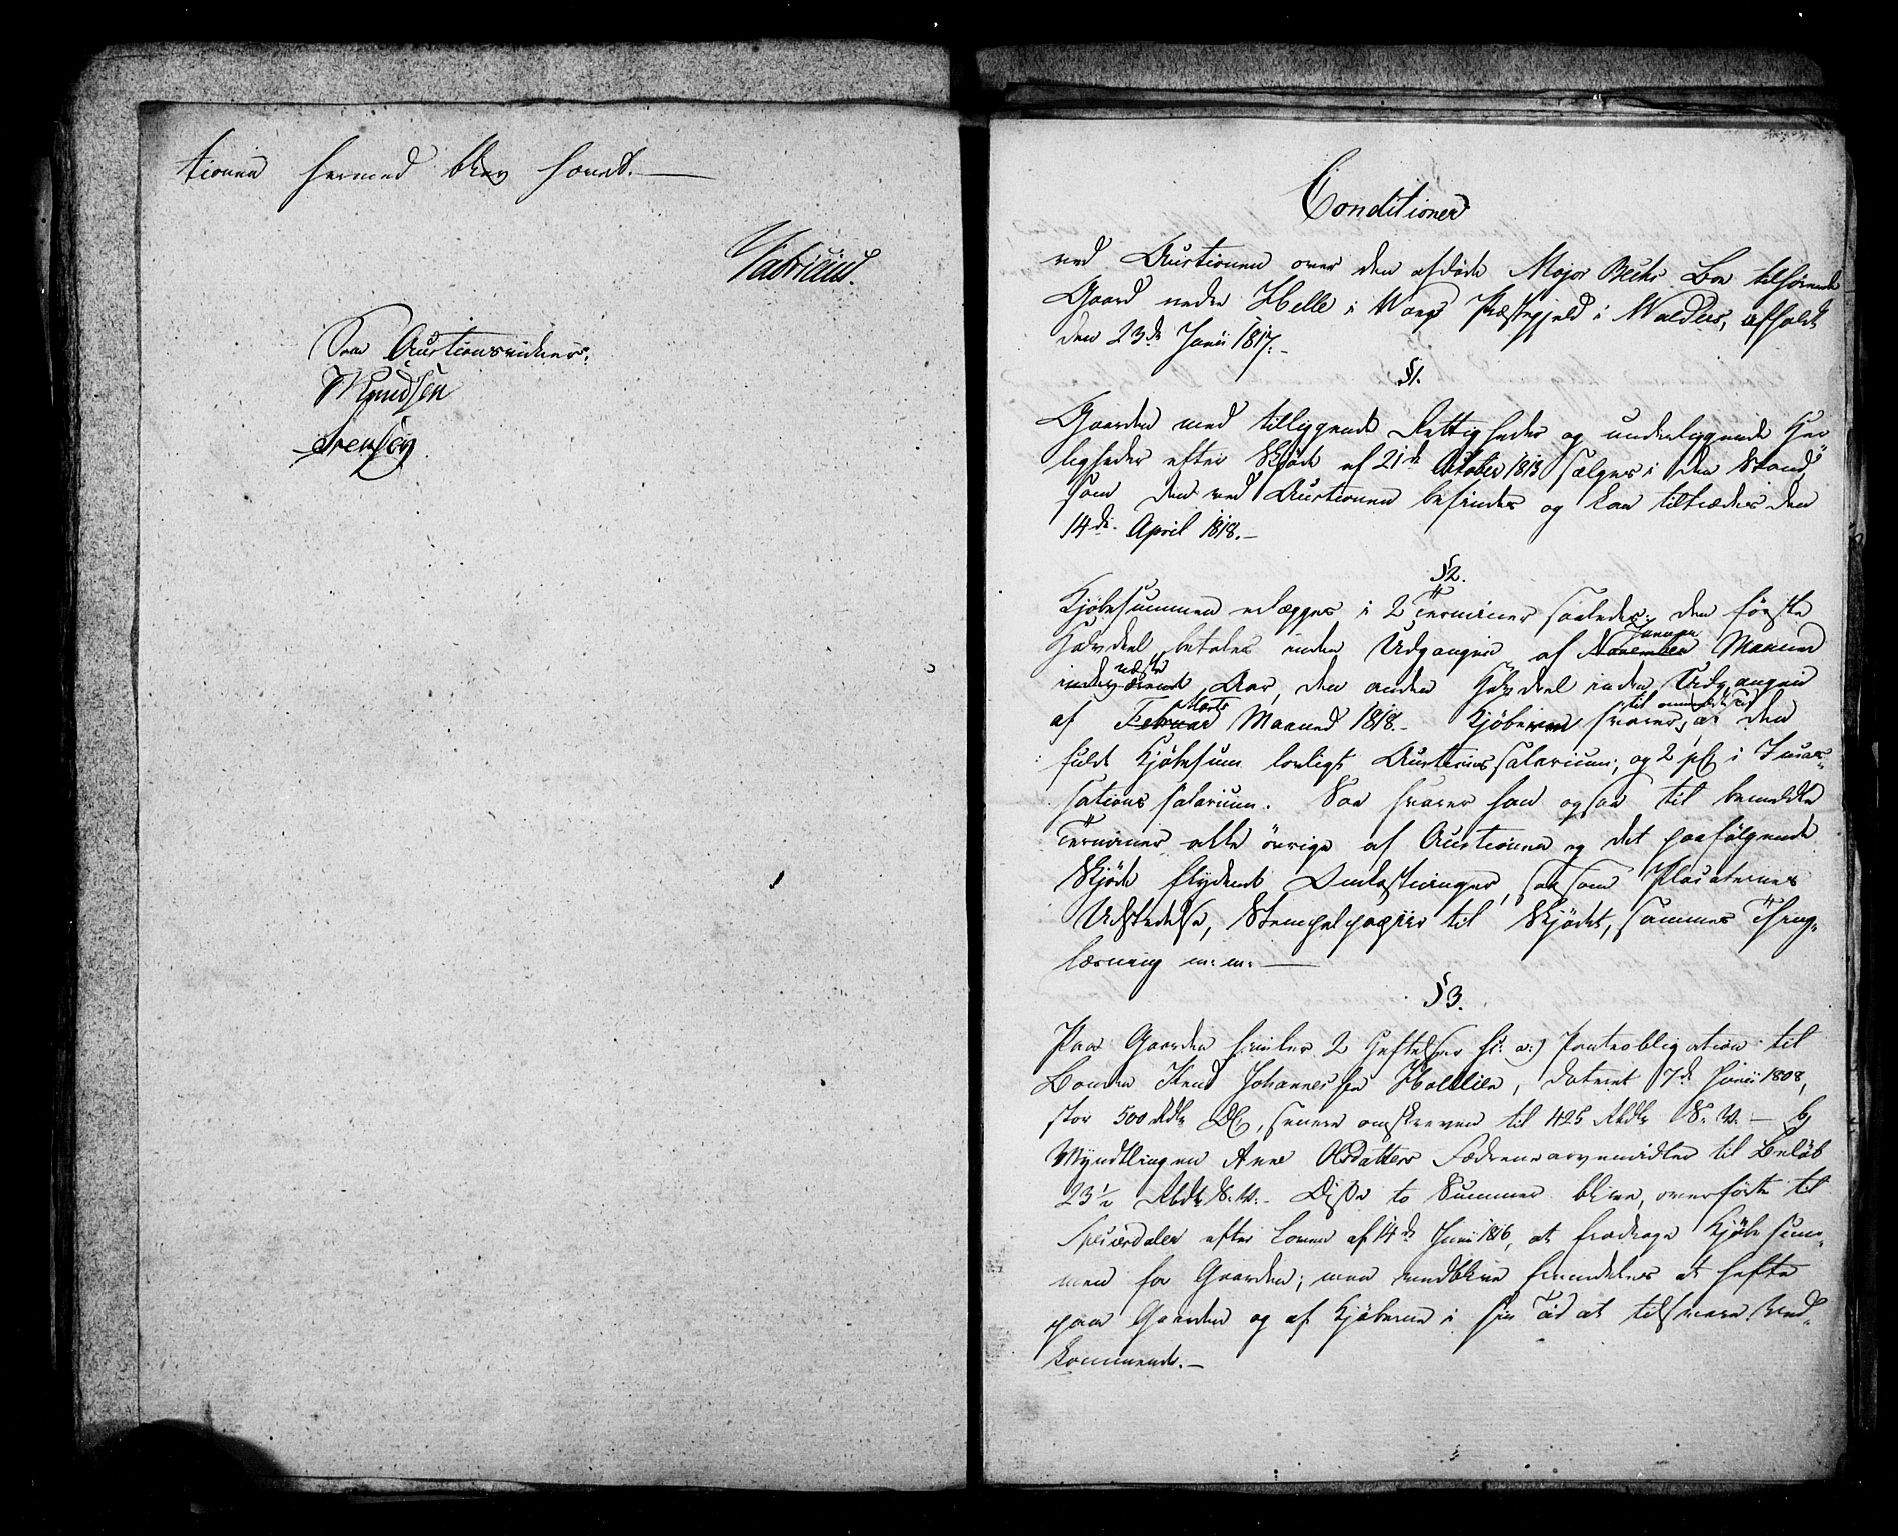 tionen hermed blev hævet.—
Fabricius.
Som Auctionsvidner:
Knudsen
Svensen
Conditioner
ved Auctionen over den afdøde Major Becks Boe tilhørende
Gaard nedre Helle i Vangs Præstegjeld i Valders, afholdt
den 23de Junii 1817.—
§1.
Gaarden med tilliggende Rettigheder og underliggende Her„
ligheder efter Skjøde af 21de October 1813 sælges i den Stand
som den ved Auctionen befindes og kan tiltrædes den
14de April 1818.—
§2.
Kjøbesummen erlægges i 2 Terminer saaledes: den første
Januar
Halvdeel betales inden Udgangen af November Maaned
næste
indeværende Aar, den anden Halvdeel inden Udgangen
Marts til samme Tid
af Februar Maaned 1818.— Kjøberen svarer, af den
fulde Kjøbesum lovligt Auctionssalarium, og 2 pC i Incas„
sations salarium. Saa svarer han ogsaa til bemeldte
Terminer alle øvrige af Auctionen og det paafølgende
Skjøde flydende Omkostninger, saasom Placaternes
Udstedelse, Stempelpapiir til Skjødet, sammes Thing„
læsning m: m: —
§3.
Paa Gaarden hæfter 2 Heftelser sc: a:) Panteobligation til
Bonden Knud Johannessen Hollien, dateret 7de Junii 1808,
stor 500 Rdlr DC, senere omskreven til 425 Rbdlr S. V. — b)
Myndtlingen Anne Olsdatters Fædrenearvemidler til Beløb
23½ Rbdlr S. V.— Disse to Summer blive, overførte til
Speciesdaler efter Loven af 14de Junii 1816, at fradrage Kjøbesum„
men for Gaarden; men vedblive fremdeles at hefte
paa Gaarden og af Kjøberne i sin Tid at tilsvare Ved„
kommende.—